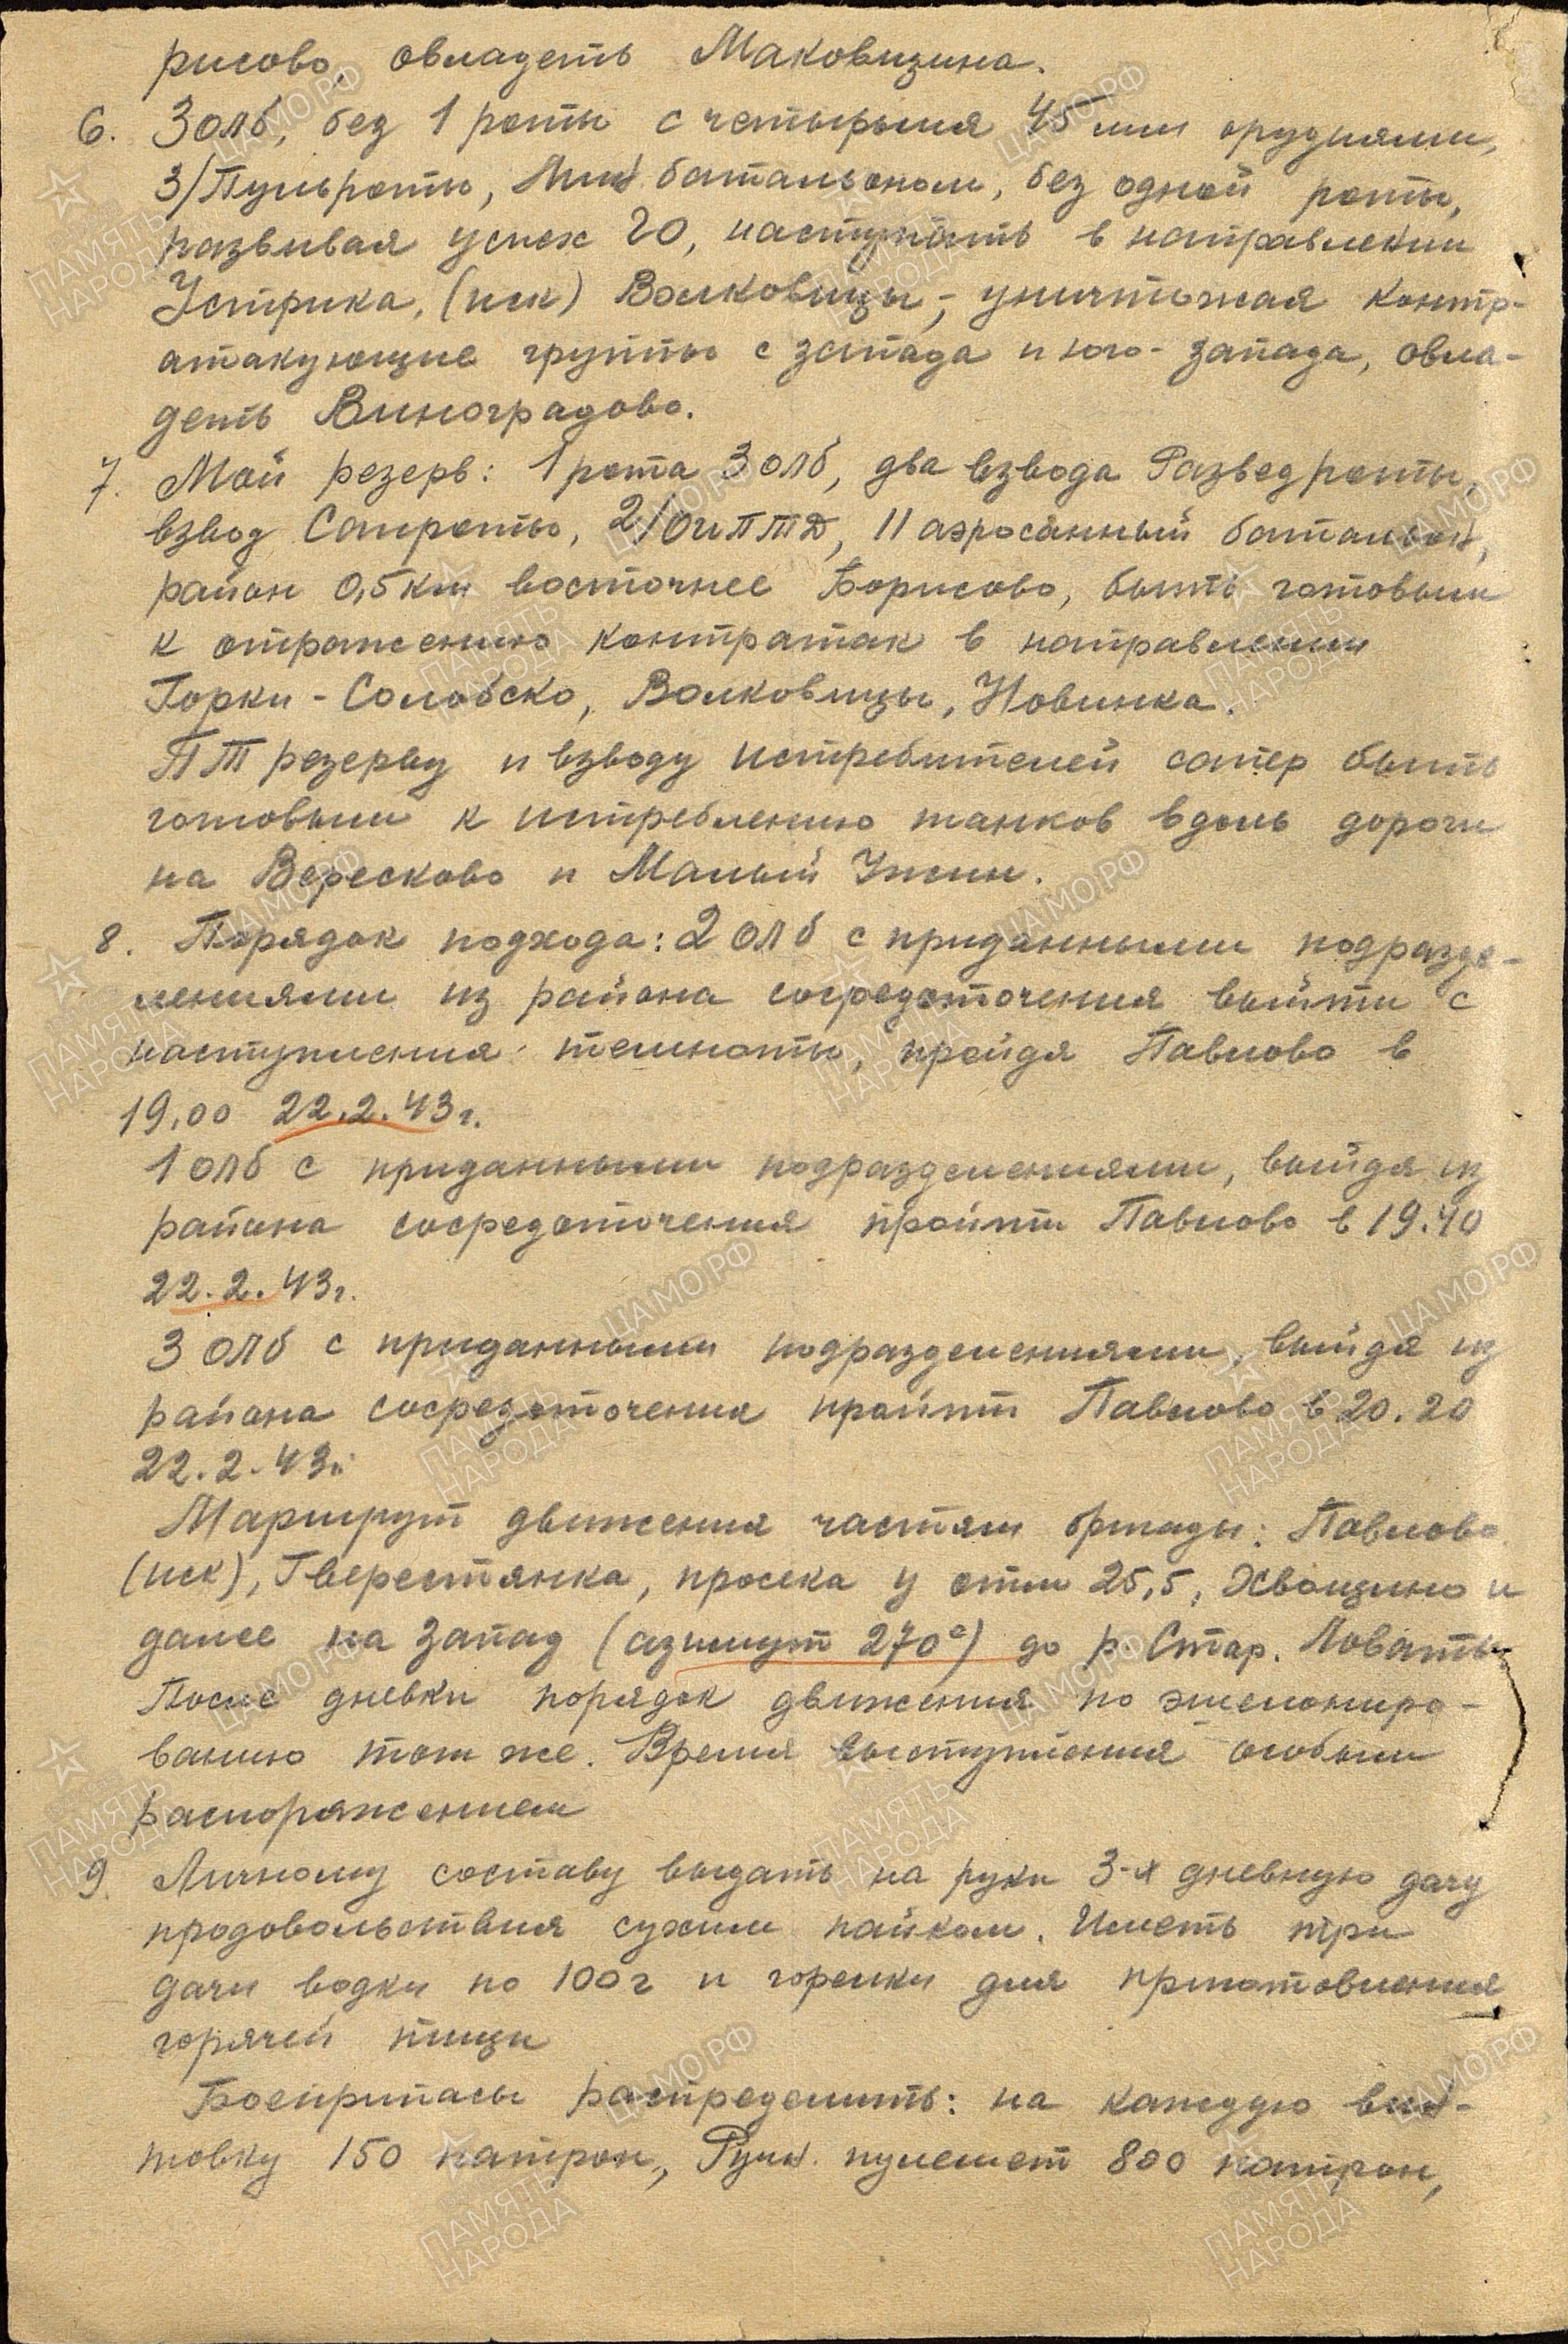 рисово, овладеть Маковищина.
6. 3 олб, без 1 роты с четырьмя 45 мм орудиями,
3/Пульроты, Мин батальоном, без одной роты,
развивая успех 20, наступать в направлении
Устрика, (иск) Волковицы, уничтожая контр-
атакующие группы с запада и юго-запада, овла-
деть Виноградово.
7. Мой резерв: 1 рота 3 олб, два взвода Разведроты,
взвод Сапроты, 2/ОиПТД, 11 аэросанный батальон,
район 0,5 км восточнее Борисово, быть готовыми
к отражению контратак в направлении
Горки - Солобско, Волковицы, Новинка.
ПТ резерву и взводу истребителей сапер быть
готовыми к истреблению танков вдоль дороги
на Вересково и Малый Ужин.
8. Порядок подхода: 2 олб с приданными подразде-
лениями из района сосредоточения выйти с
наступления темноты, пройдя Павлово в
19.00 22.2.43г.
1 олб с приданными подразделениями, выйдя из
района сосредоточения пройти Павлово в 19.40
22.2.43г.
3 олб с приданными подразделениями, выйдя из
района сосредоточения пройти Павлово в 20.20
22.2.43г.
Маршрут движения частям бригады: Павлово
(иск), Гверестянка, просека у отм 25,5, Хвощино и
далее на запад (азимут 270°) до р. Стар. Ловать
После дневки порядок движения по эшелониро-
ванию тот же. Время выступления особым
распоряжением
9. Личному составу выдать на руки 3-х дневную дачу
продовольствия сухим пайком. Иметь три
дачи водки по 100 г и горелки для приготовления
горячей пищи
Боеприпасы распределить: на каждую вин-
товку 150 патрон, Ручн. пулемет 800 патрон,
ПАМЯТЬ НАРОДА
ЦАМО.РФ